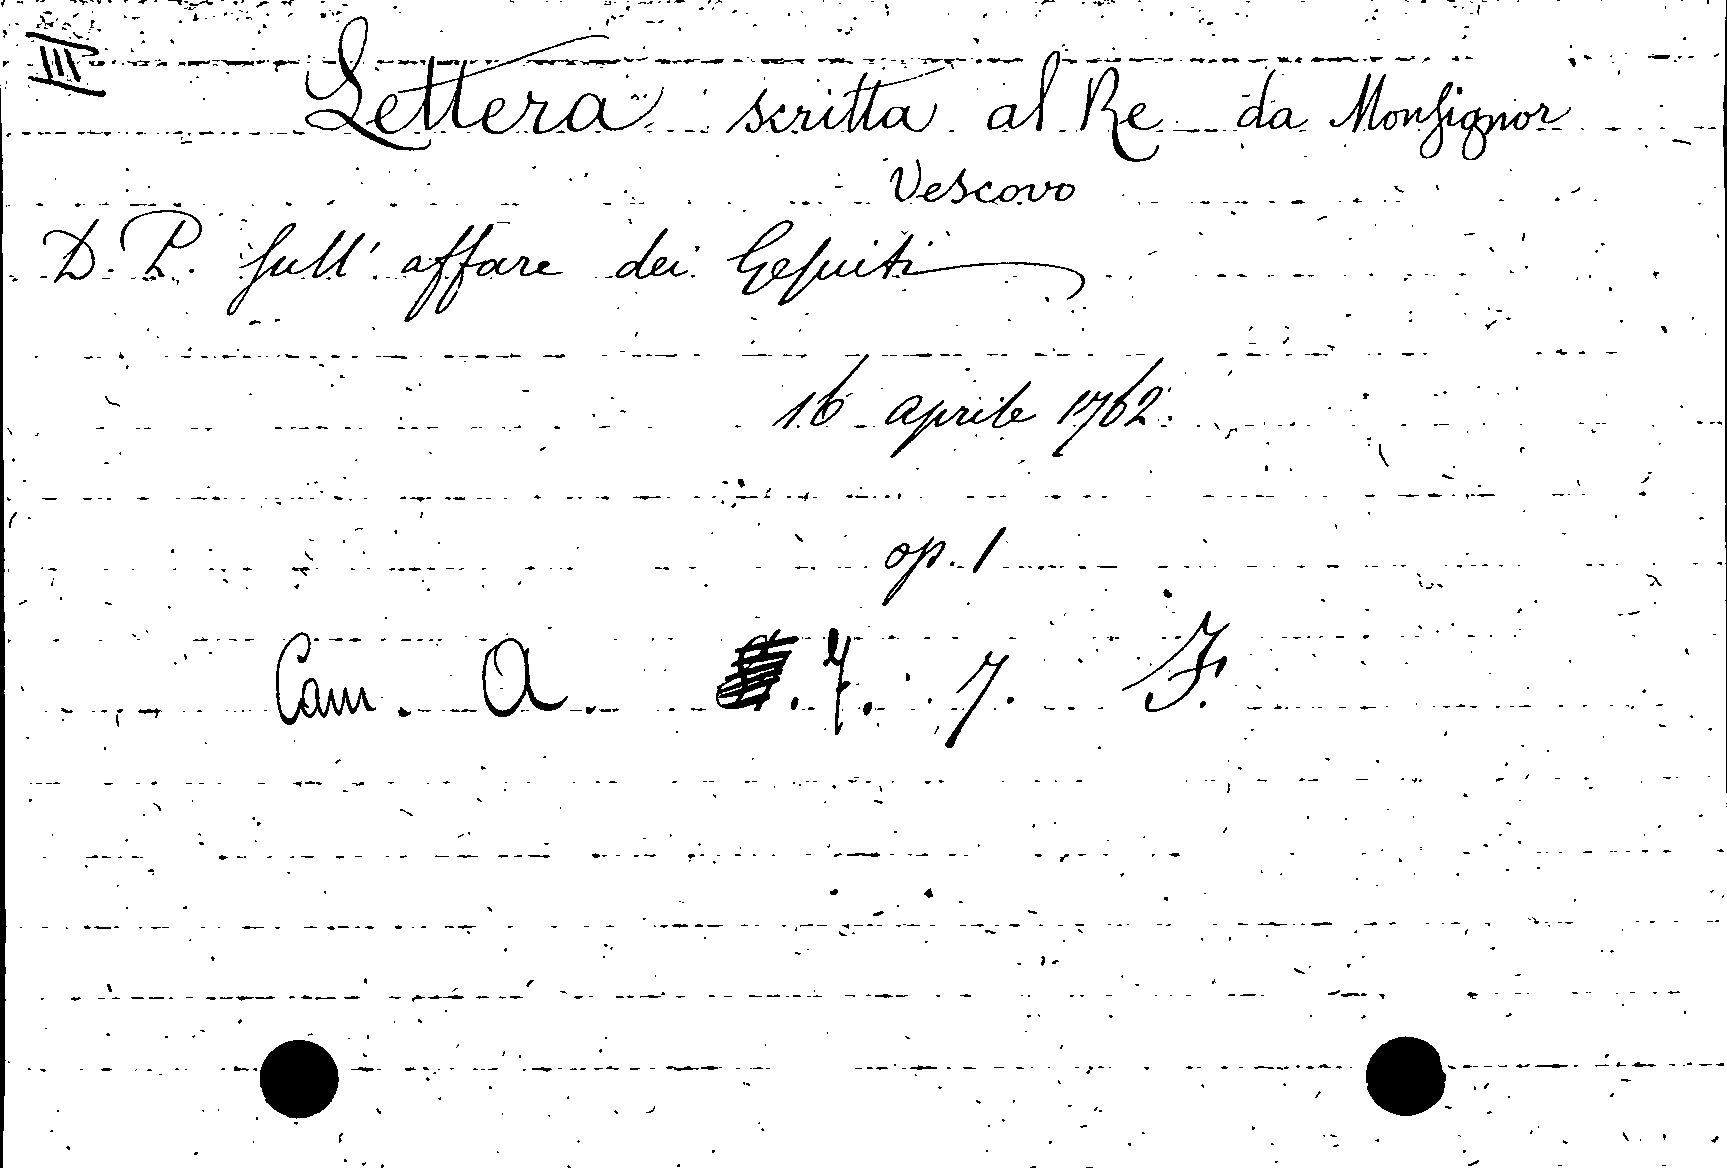 III
Lettera scritta al Re da Monsignor
Vescovo
D. P. sull' affare dei Gesuiti
16 aprile 1762.
op. 1
Cam. A. . 7. 7. F.